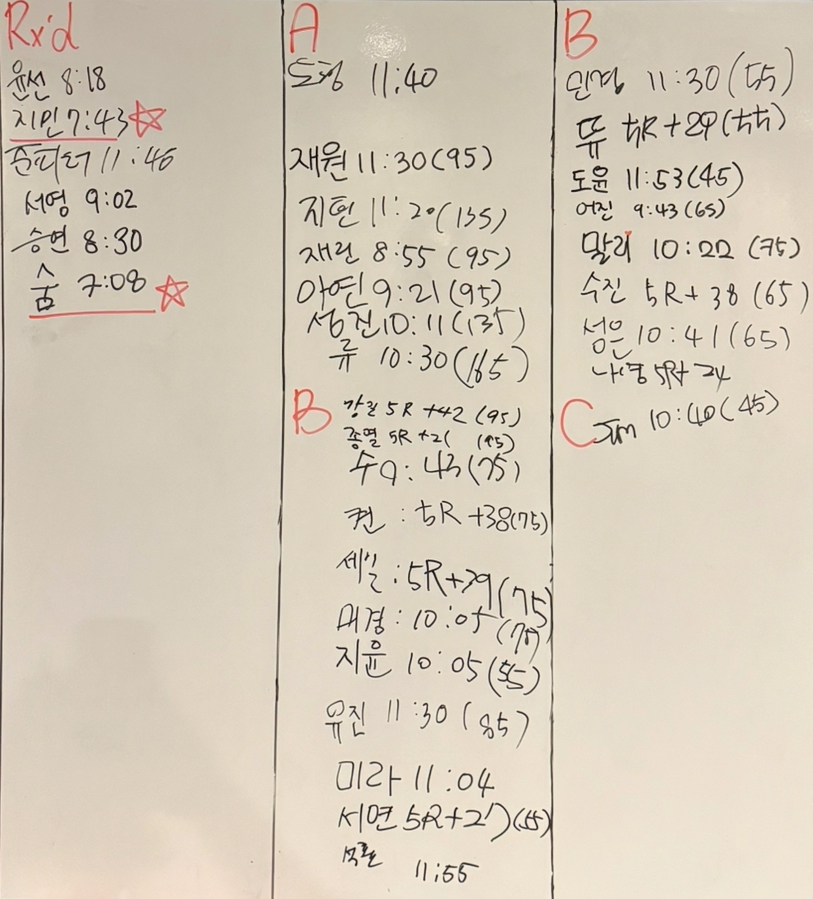 Rx'd
윤선 8:18
지민 7:43
준피터 11:46
서영 9:02
승연 8:30
숨 7:08
A
도형 11:40
재원 11:30(95)
지현 11:20(135)
재린 8:55 (95)
아연 9:21(95)
성진 10:11(135)
류 10:30(165)
B
5R +42 (95)
종열 5R +21
수 9:43(75)
켠 : 5R +38(75)
세일 : 5R+39(75)
미경 : 10:05
지윤 10:05(55)
유진 11:30(85)
미라 11:04
서연 5R+27(55)
11:55
B
민경 11:30(55)
뜌 5R +29(55)
도윤 11:53(45)
어진 9:43(65)
말리 10:22 (75)
수진 5R+38 (65)
성은 10:41(65)
5R+ 24
C
Jim 10:40(45)